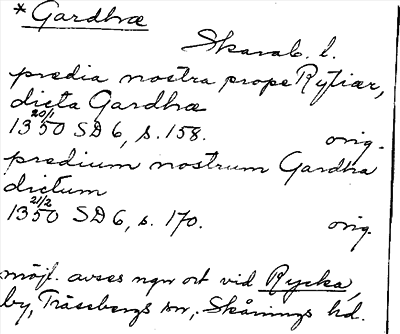 * Gardhæ
Skarab. l.
predia nostra prope Rytiær,
dicta Gardhæ
20/1
1350 SD 6, s. 158. orig.
predium nostrum Gardha
dictum
21/2
1350 SD 6, s. 170. orig.
möjl. avses ngn ort vid Rycka,
by, Trässbergs sn, Skånings hd.